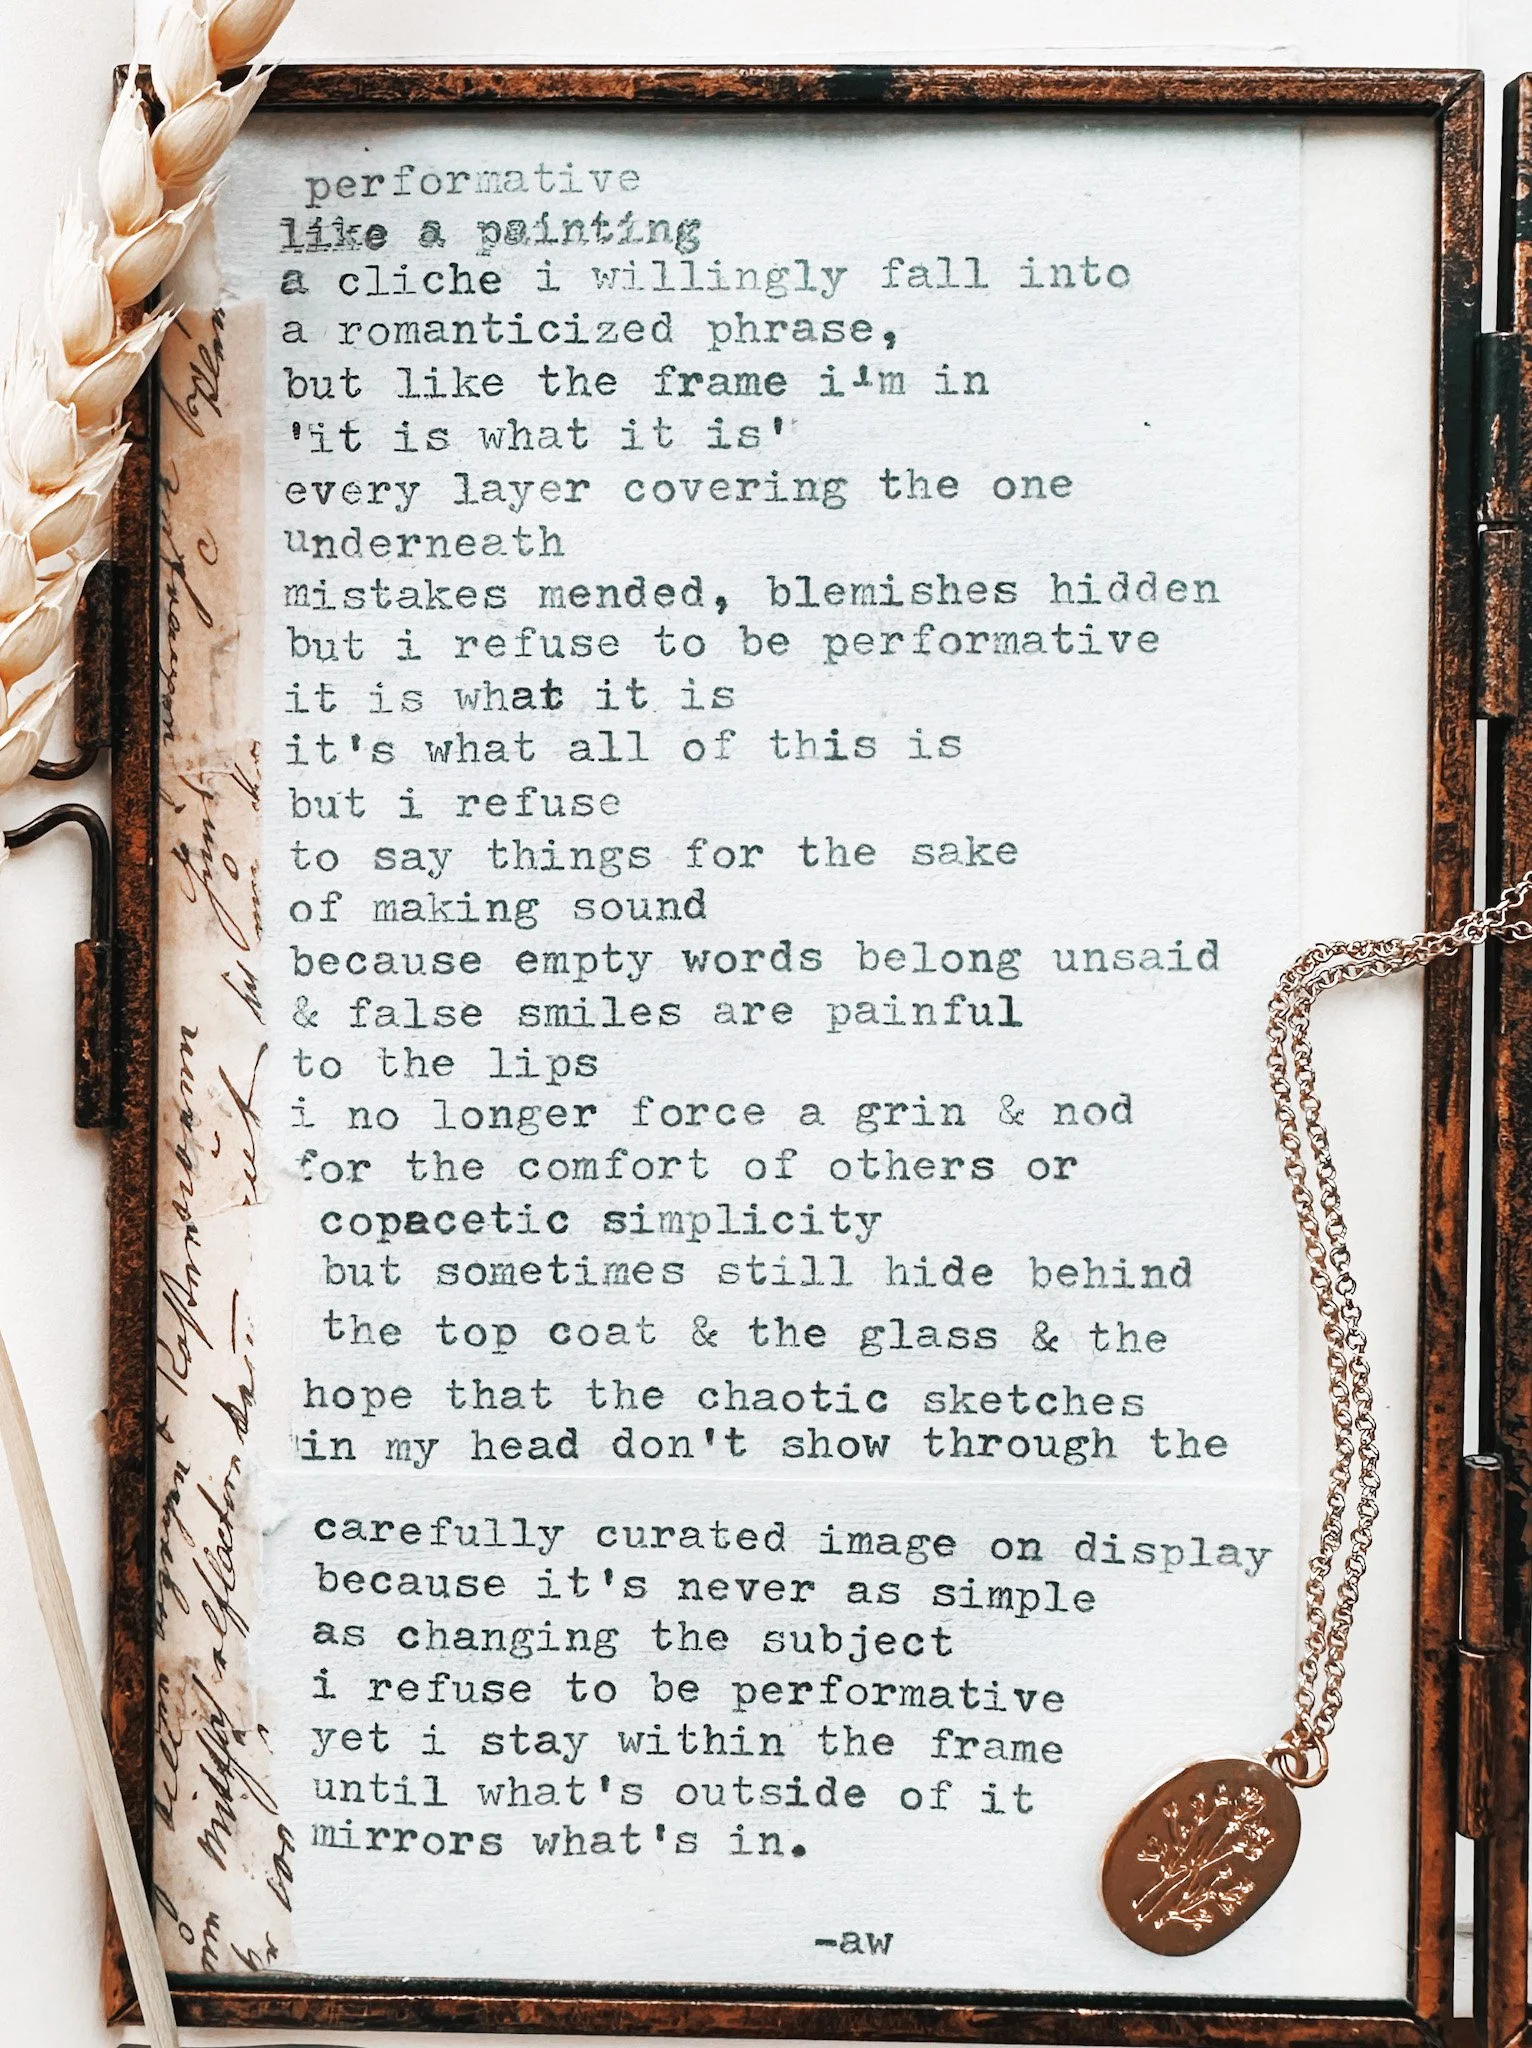 performative
like a painting
a cliche i willingly fall into
a romanticized phrase,
but like the frame i'm in
'it is what it is'
every layer covering the one
underneath
mistakes mended, blemishes hidden
but i refuse to be performative
it is what it is
it's what all of this is
but i refuse
to say things for the sake
of making sound
because empty words belong unsaid
& false smiles are painful
to the lips
i no longer force a grin & nod
for the comfort of others or
copacetic simplicity
but sometimes still hide behind
the top coat & the glass & the
hope that the chaotic sketches
in my head don't show through the
carefully curated image on display
because it's never as simple
as changing the subject
i refuse to be performative
yet i stay within the frame
until what's outside of it
mirrors what's in.
-aw